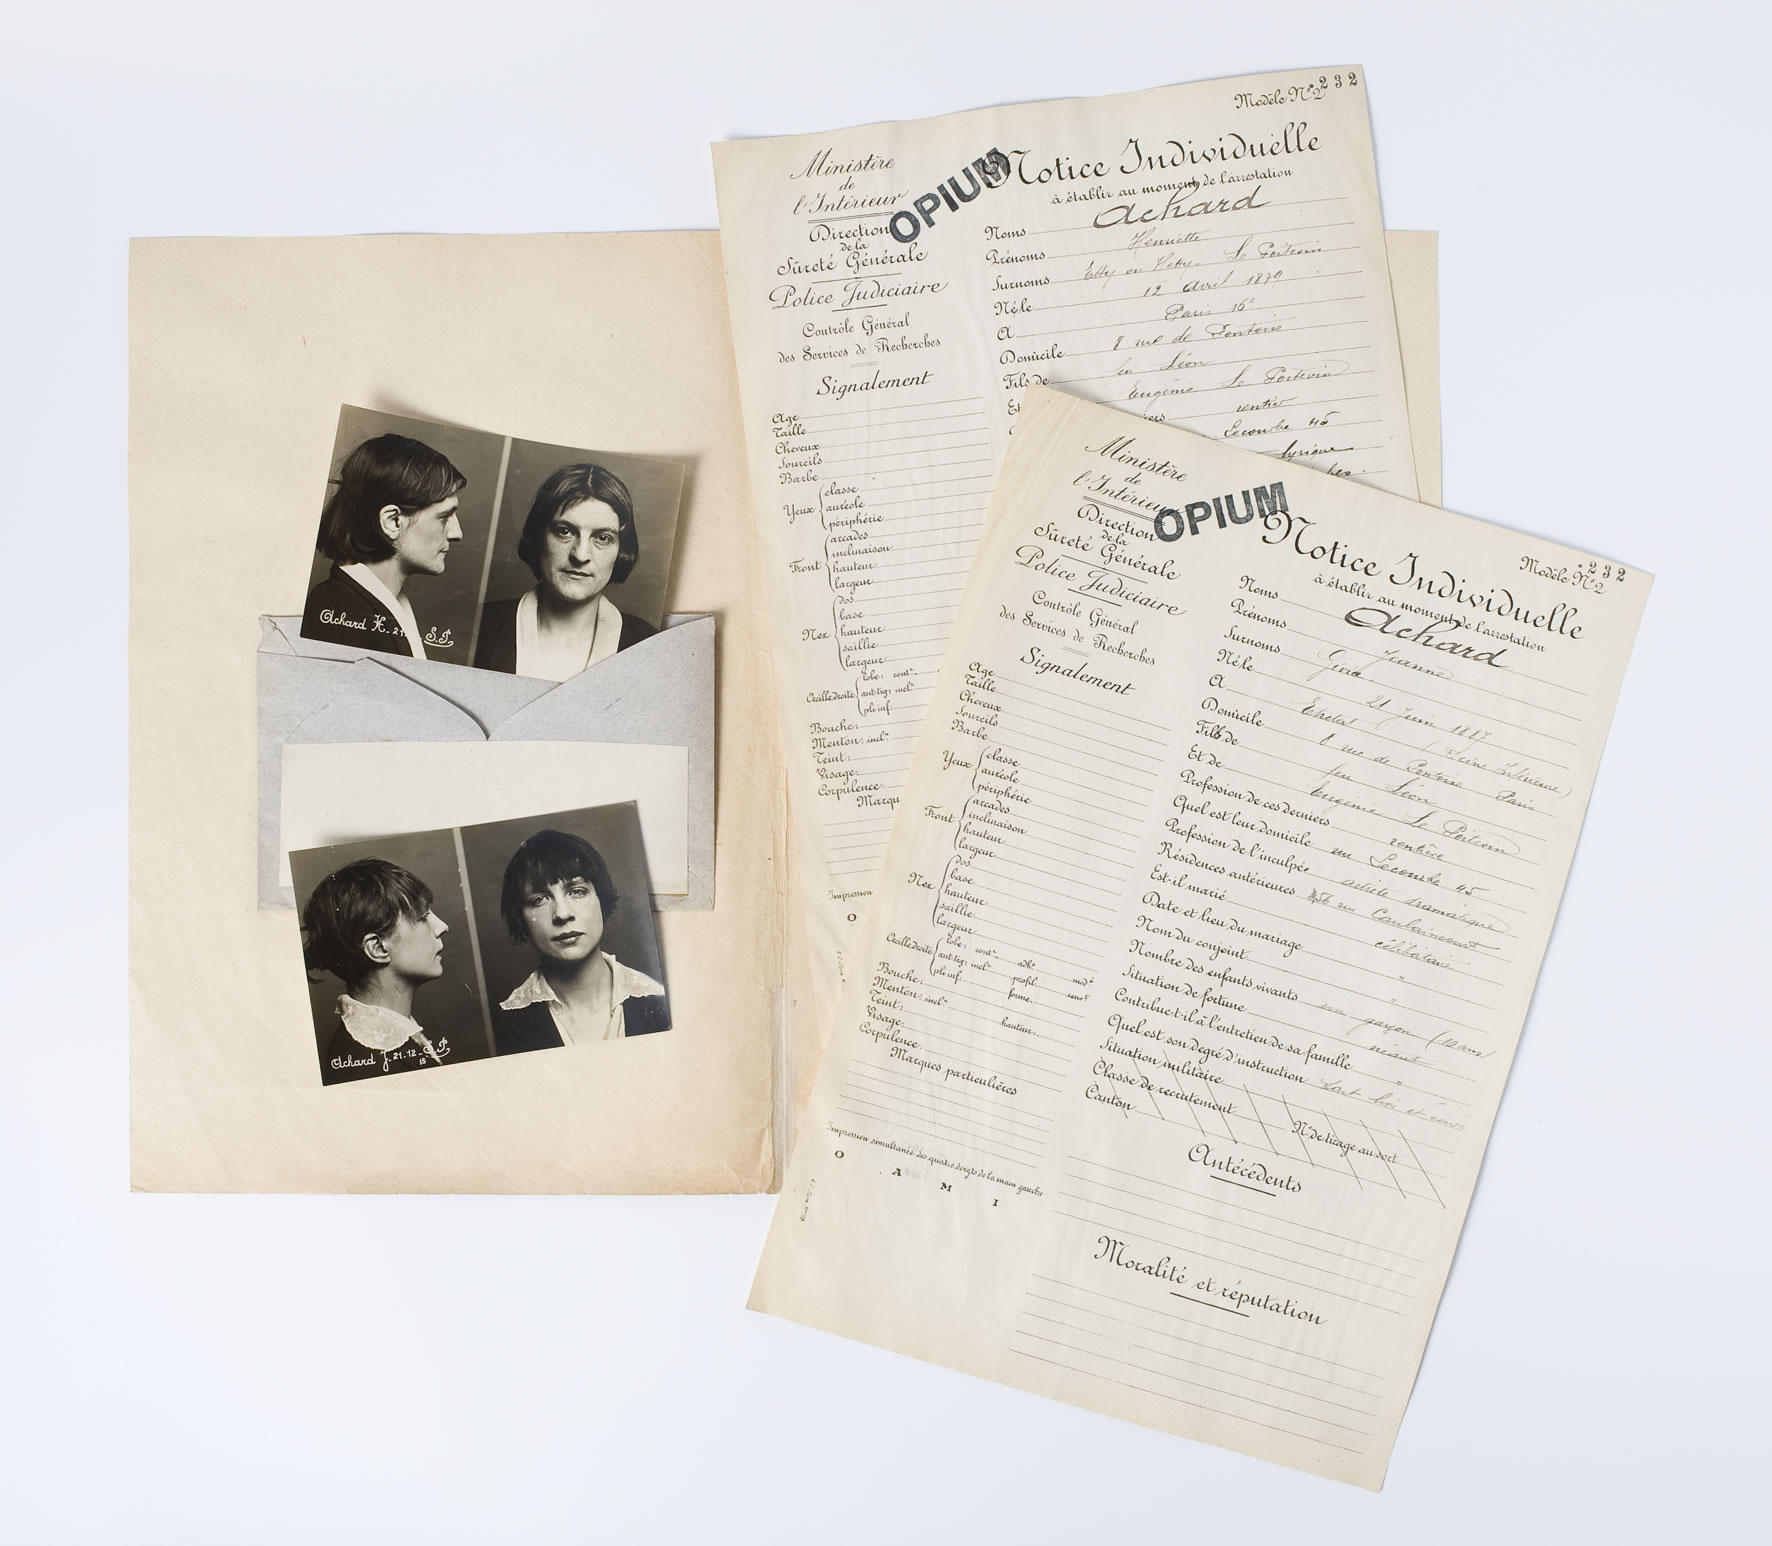 Achard H. 21. S.J.
Achard J. 21.12. S.J.
15
Modèle N° 2
232
Ministère
de
l'Intérieur
OPIUM
Direction
de la
Sûreté Générale
Police Judiciaire
Contrôle Général
des Services de Recherches
Signalement
Age
Taille
Cheveux
Sourcils
Barbe
Yeux
classe
auréole
périphérie
Front
arcades
inclinaison
hauteur
largeur
Nez
dos
base
hauteur
saillie
largeur
Oreille droite
lobe: cont.
antitrg: incl.
pli inf.
Bouche:
Menton: incl.
Teint:
Visage:
Corpulence:
Marqu
Impression
O
Notice Individuelle
à établir au moment de l'arrestation
Noms Achard
Prénoms Henriette
Surnoms Etty ou Hetty. Le Poitevin
Né le 12 Avril 1879
A Paris 16e
Domicile 8 rue de Fontaine
Fils de feu Léon
Et Eugénie Le Poitevin
iers rentier
Lecombe 45
lyrique
Modèle N° 2
232
Ministère
de
l'Intérieur
OPIUM
Direction
de la
Sûreté Générale
Police Judiciaire
Contrôle Général
des Services de Recherches
Signalement
Age
Taille
Cheveux
Sourcils
Barbe
Yeux
classe
auréole
périphérie
Front
arcades
inclinaison
hauteur
largeur
Nez
dos
base
hauteur
saillie
largeur
Oreille droite
lobe: cont. adh.
antitrg: incl. profil
pli inf. forme.
Bouche:
Menton: incl. hauteur.
Teint:
Visage:
Corpulence:
Marques particulières
Impression simultanée des quatre doigts de la main gauche
O A M I
Notice Individuelle
à établir au moment de l'arrestation
Noms Achard
Prénoms Jeanne
Surnoms
Né le 21 Juin 1887
A (Seine Inférieure)
Domicile 8 rue de Fontaine Paris
Fils de feu Léon
Et de Eugénie Le Poitevin
Profession de ces derniers rentière
Quel est leur domicile rue Lecombe 45
Profession de l'inculpée artiste dramatique
Résidences antérieures rue Caulaincourt
Est-il marié célibataire
Date et lieu du mariage "
Nom du conjoint "
Nombre des enfants vivants un garçon (10 ans)
Situation de fortune néant
Contribue-t-il à l'entretien de sa famille "
Quel est son degré d'instruction sait lire et écrire
Situation militaire
Classe de recrutement N° de tirage au sort
Canton
Antécédents
Moralité et réputation